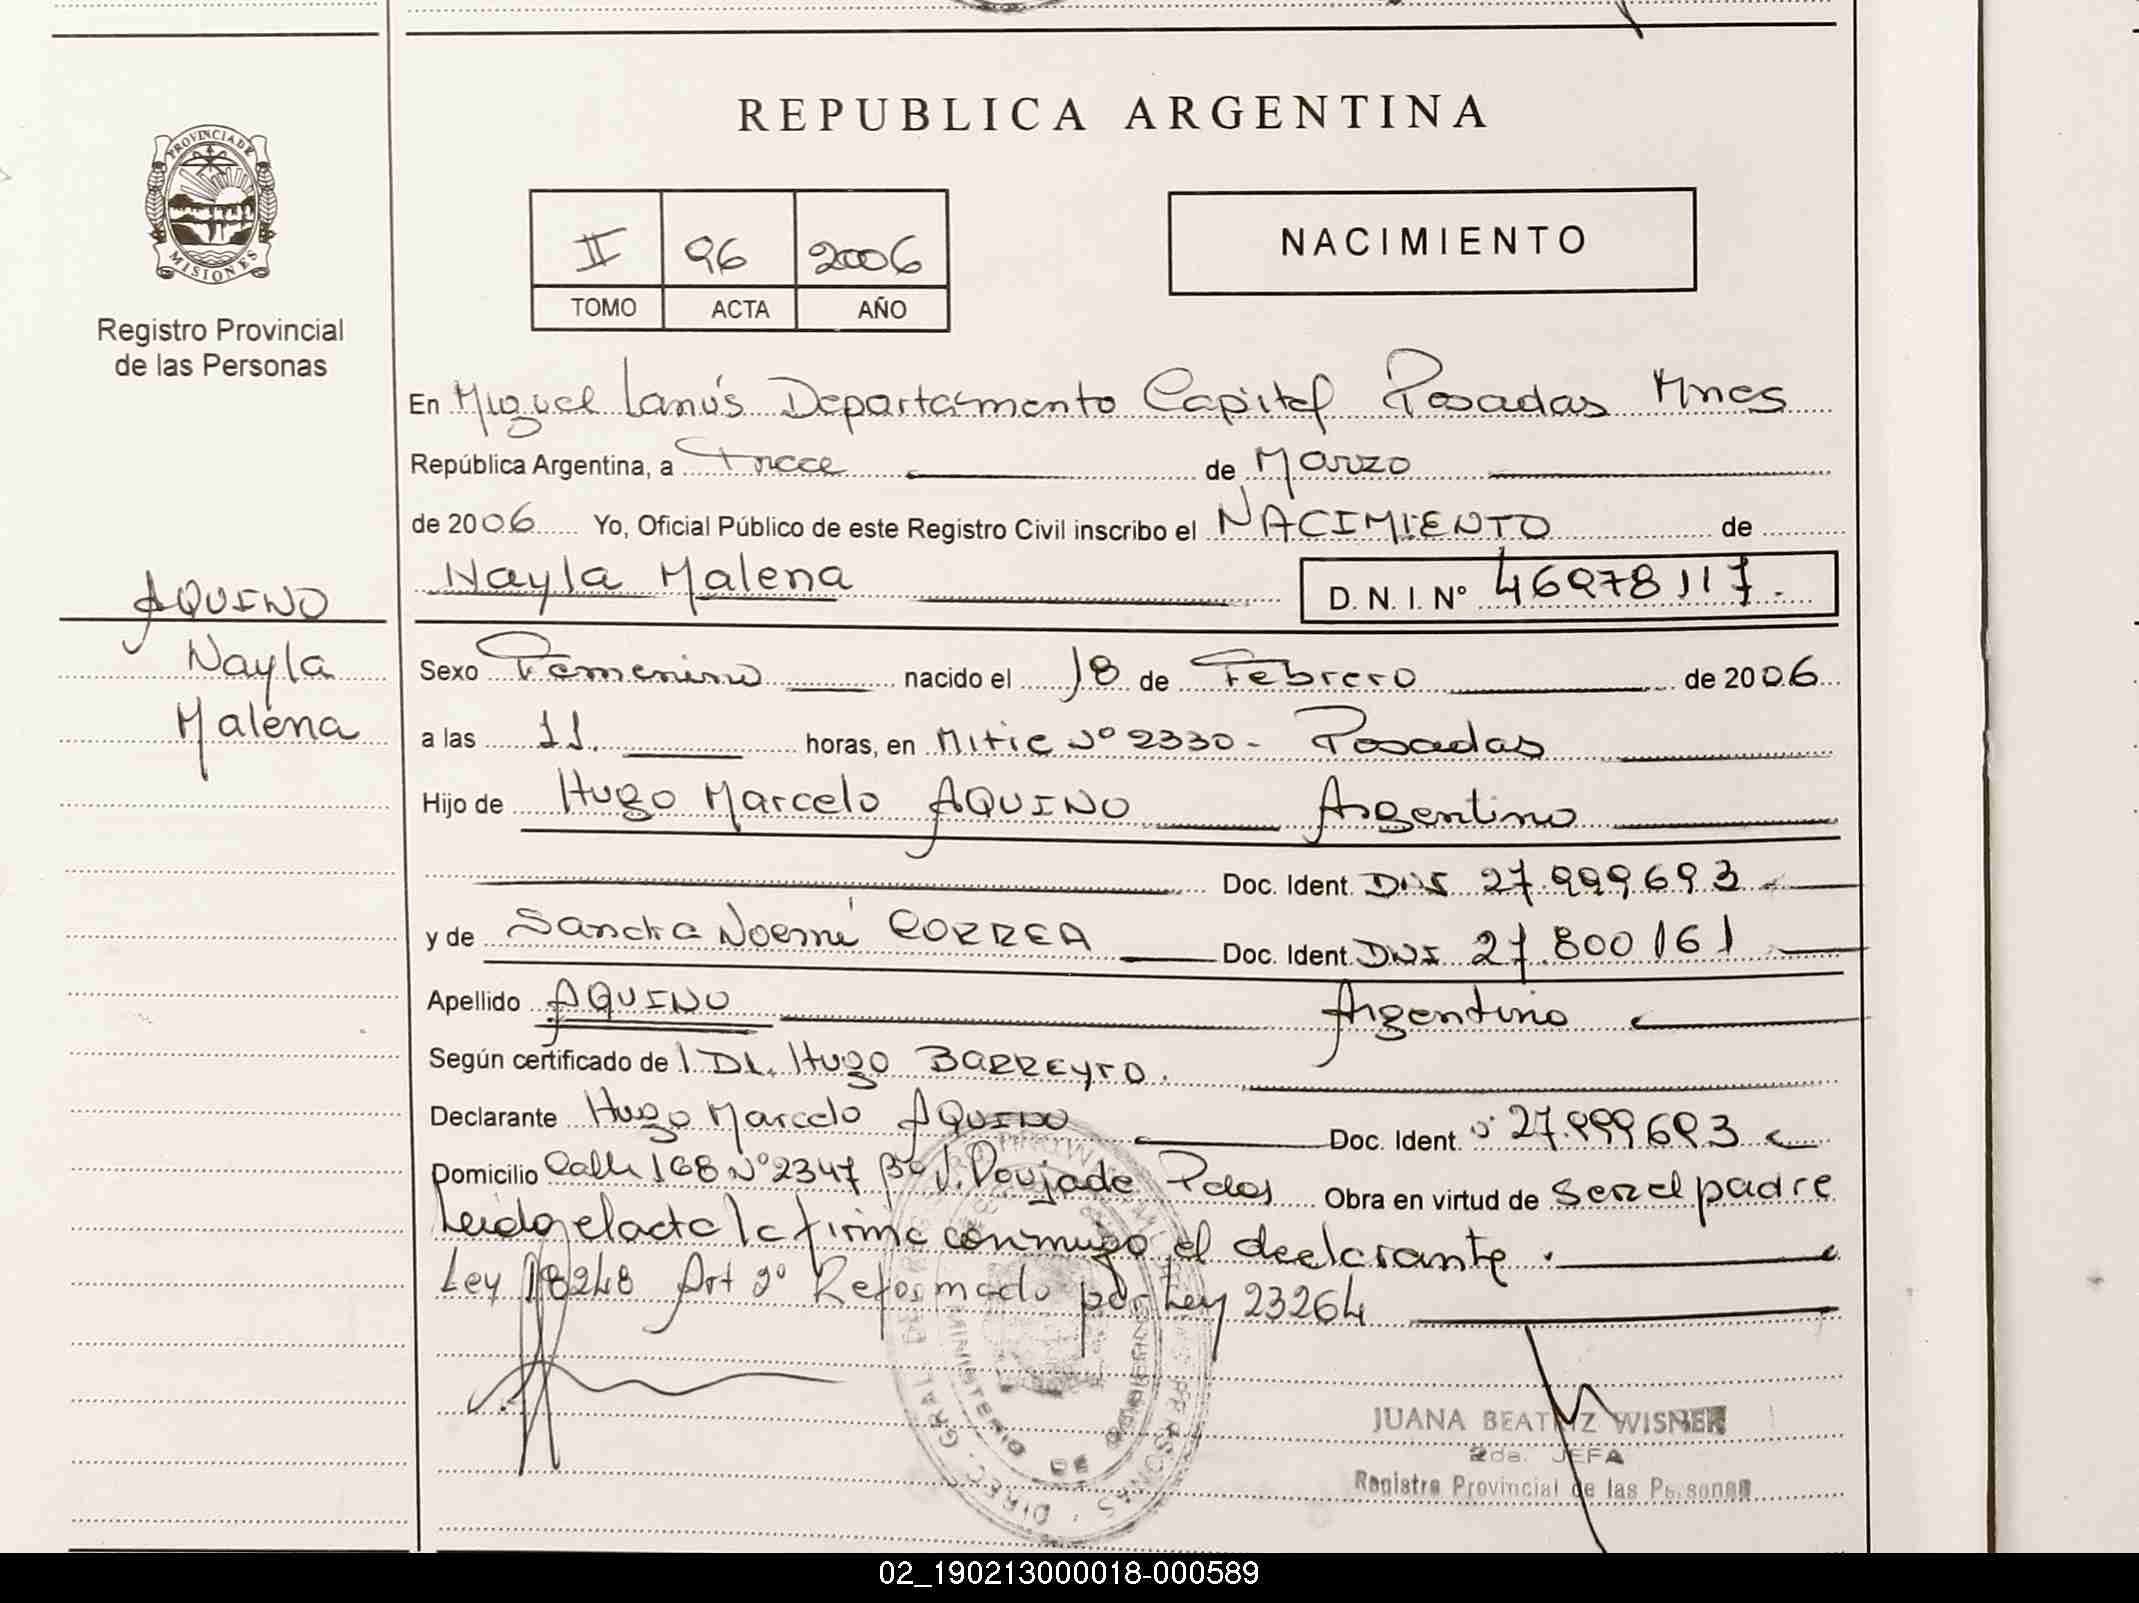 REPUBLICA ARGENTINA
PROVINCIA DE
MISIONES
Registro Provincial
de las Personas
II 96 2006
TOMO ACTA AÑO
NACIMIENTO
En Miguel Lanús Departamento Capital Posadas Mnes
República Argentina, a Trece de Marzo
de 2006 Yo, Oficial Público de este Registro Civil inscribo el NACIMIENTO de
Nayla Malena D. N. I. Nº 46978117.
AQUINO
Nayla
Malena
Sexo Femenino nacido el 18 de Febrero de 2006
a las 11. horas, en Mitre Nº 2330 - Posadas
Hijo de Hugo Marcelo AQUINO Argentino
Doc. Ident. DNI 27.999693
y de Sandra Noemí CORREA Doc. Ident. DNI 27.800161
Apellido AQUINO Argentino
Según certificado de Hugo BARREYRO.
Declarante Hugo Marcelo AQUINO Doc. Ident. 27.999693
Domicilio Calle 168 Nº 2347 Bº Pdas Obra en virtud de ser el padre
Leido el acta la firma conmigo el declarante.
Ley 18248 Art 2º Reformado por Ley 23264
JUANA BEATRIZ WISNER
2da. JEFA
Registro Provincial de las Personas
02_190213000018-000589